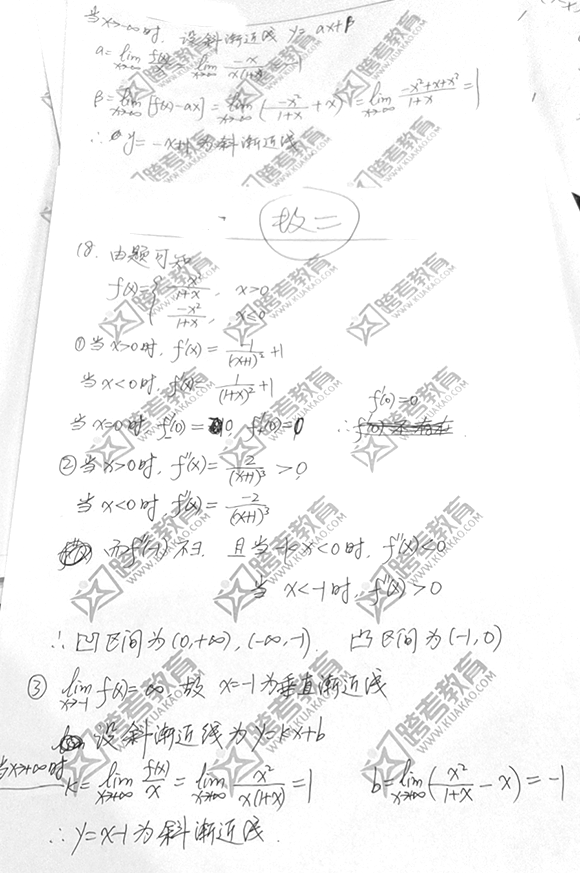 当x→-∞时, 设斜渐近线 y=ax+β
a=lim x→-∞ f(x)/x = lim x→-∞ -x/x(1+x)
β=lim x→-∞ [f(x)-ax] = lim x→-∞ (-x²/1+x + x) = lim x→-∞ -x²+x+x²/1+x = 1
∴ y=-x+1为斜渐近线
故二
18. 由题可知
f(x)={ x²/1+x, x>0
-x²/1+x, x≤0
①当x>0时, f'(x)= -1/(x+1)² +1
当x<0时, f'(x)= 1/(1+x)² +1
当x=0时, f'₋(0)=0, f'₊(0)=0 ∴ f'(0)=0
②当x>0时, f''(x)= 2/(x+1)³ >0
当x<0时 f''(x)= -2/(x+1)³
而f''(-1)不∃. 且当-1<x<0时, f''(x)<0
当 x<-1时, f''(x)>0
∴凹区间为(0,+∞), (-∞,-1). 凸区间为(-1,0)
③ lim x→-1 f(x)=∞ 故 x=-1为垂直渐近线
设斜渐近线为y=kx+b
当x→+∞时 k=lim x→+∞ f(x)/x = lim x→+∞ x²/x(1+x) =1 b=lim x→+∞ (x²/1+x - x) = -1
∴ y=x-1为斜渐近线.
跨考教育
WWW.KUAKAO.COM